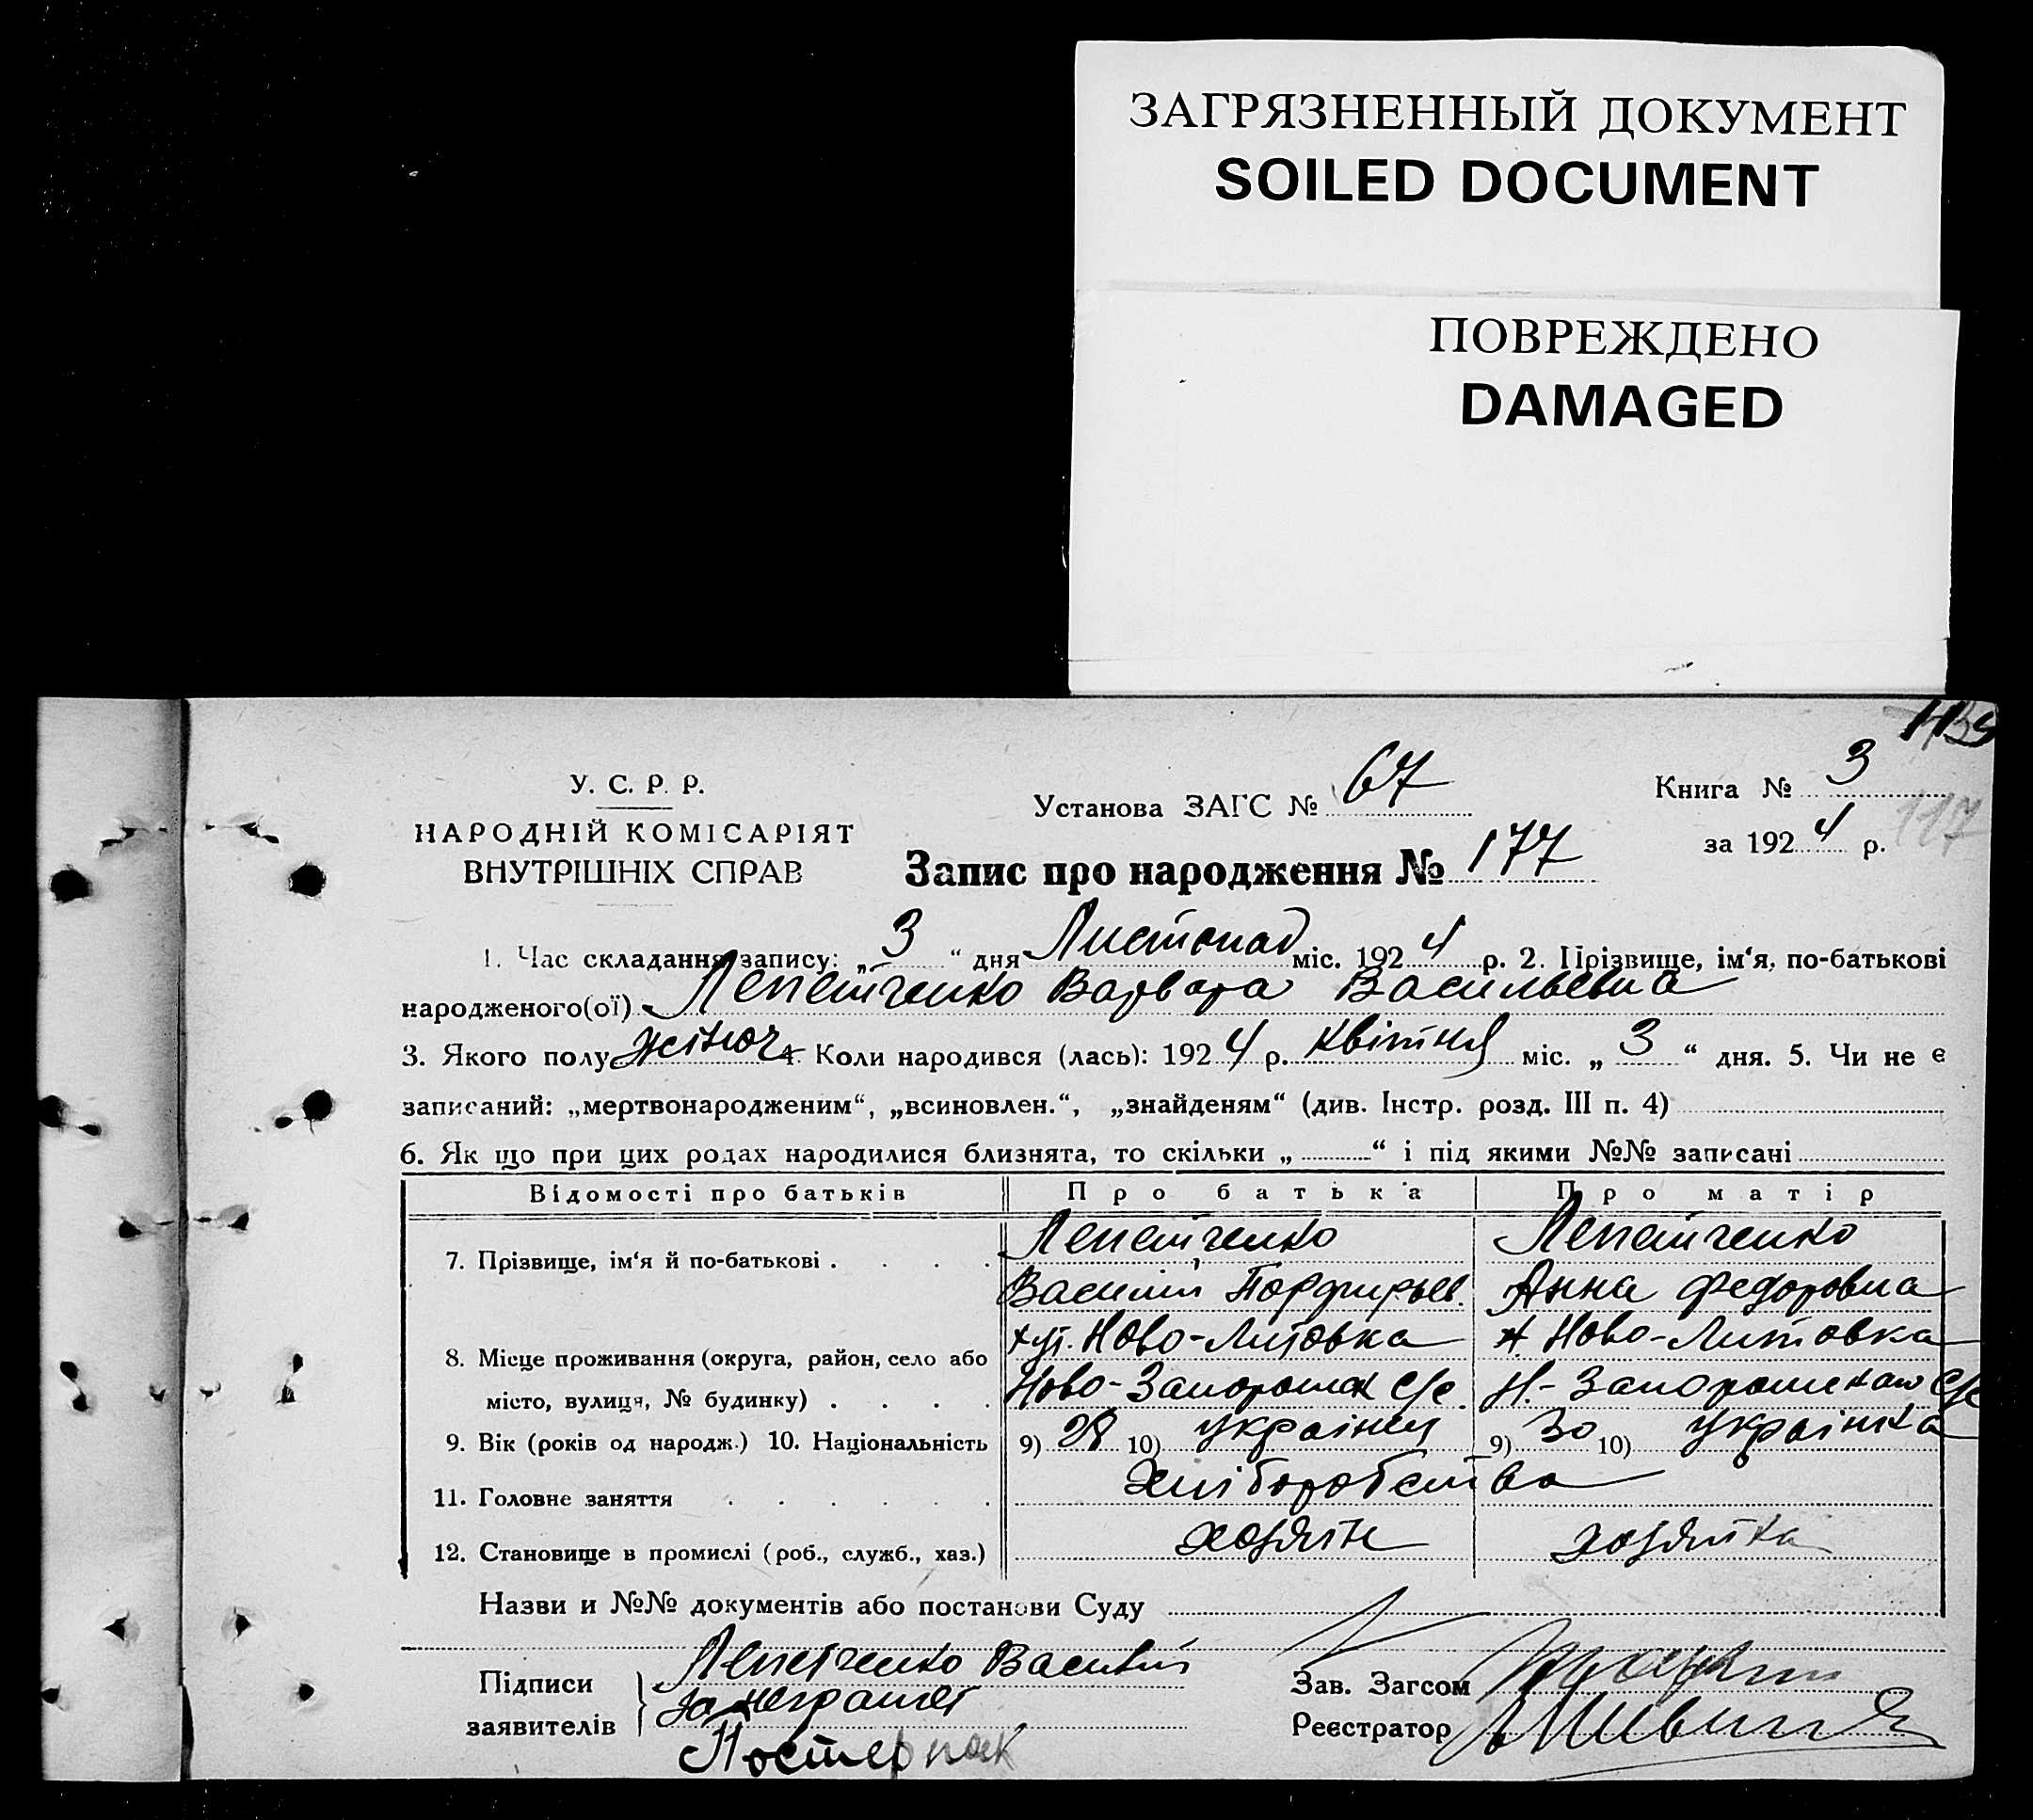 ЗАГРЯЗНЕННЫЙ ДОКУМЕНТ
SOILED DOCUMENT
ПОВРЕЖДЕНО
DAMAGED
У. С. Р. Р.
НАРОДНІЙ КОМІСАРІЯТ
ВНУТРІШНІХ СПРАВ
Установа ЗАГС № 67
Книга № 3
за 1924 р.
117
Запис про народження № 177
1. Час складання запису: „3“ дня Листопад міс. 1924 р. 2. Прізвище, ім‘я, по-батькові
народженого(ої) Лепетченко Варвара Васильевна
3. Якого полу жіноч 4. Коли народився (лась): 1924 р. Квітня міс. „3“ дня. 5. Чи не є
записаний: „мертвонародженим“, „всиновлен.“, „знайденям“ (див. Інстр. розд. III п. 4)
6. Як що при цих родах народилися близнята, то скільки „ “ і під якими №№ записані
Відомості про батьків Про батька Про матір
7. Прізвище, ім‘я й по-батькові Лепетченко Лепетченко
Василий Порфирьев. Анна Федоровна
8. Місце проживання (округа, район, село або хут. Ново-Литовка х. Ново-Литовка
місто, вулиця, № будинку) Ново- С/с Н.- С/с
9. Вік (років од народж.) 10. Національність 9) 28 10) українец 9) 30 10) українка
11. Головне заняття хліборобства
12. Становище в промислі (роб., служб., хаз.) хозяін хозяйка
Назви и №№ документів або постанови Суду
Підписи заявителів Лепетченко Василий
за неграмот
Постернак
Зав. Загсом
Реєстратор